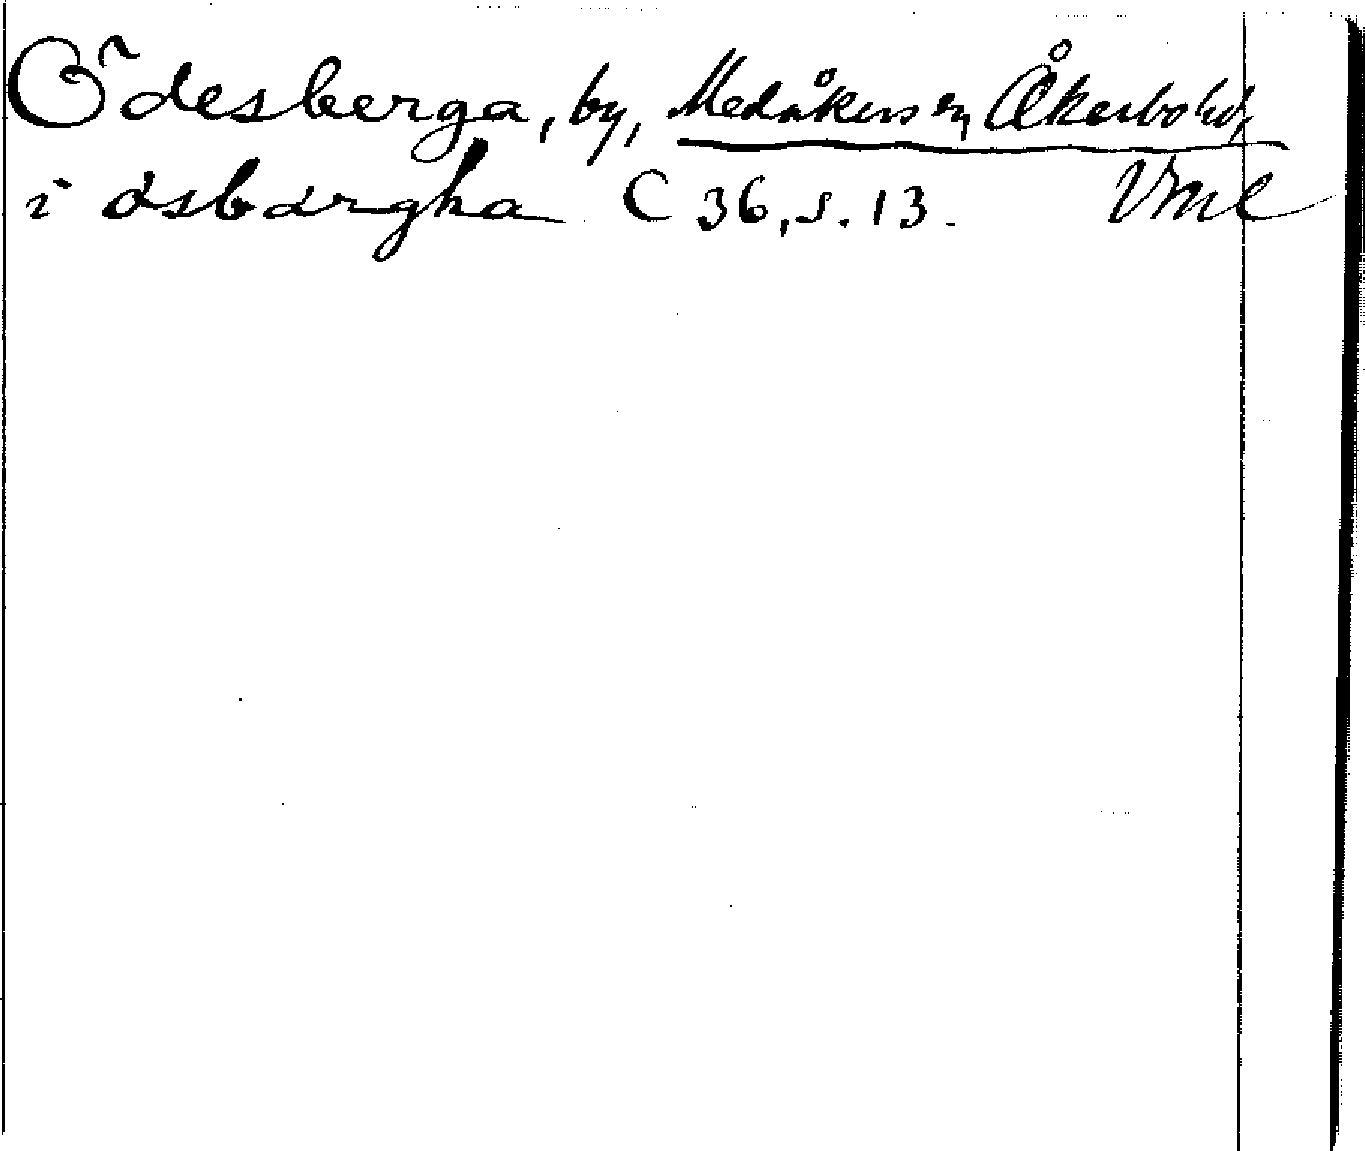 Ödesberga, by, Medåkers sn, Åkerbo hd,
i ösbärgha C 36, s. 13. Vml